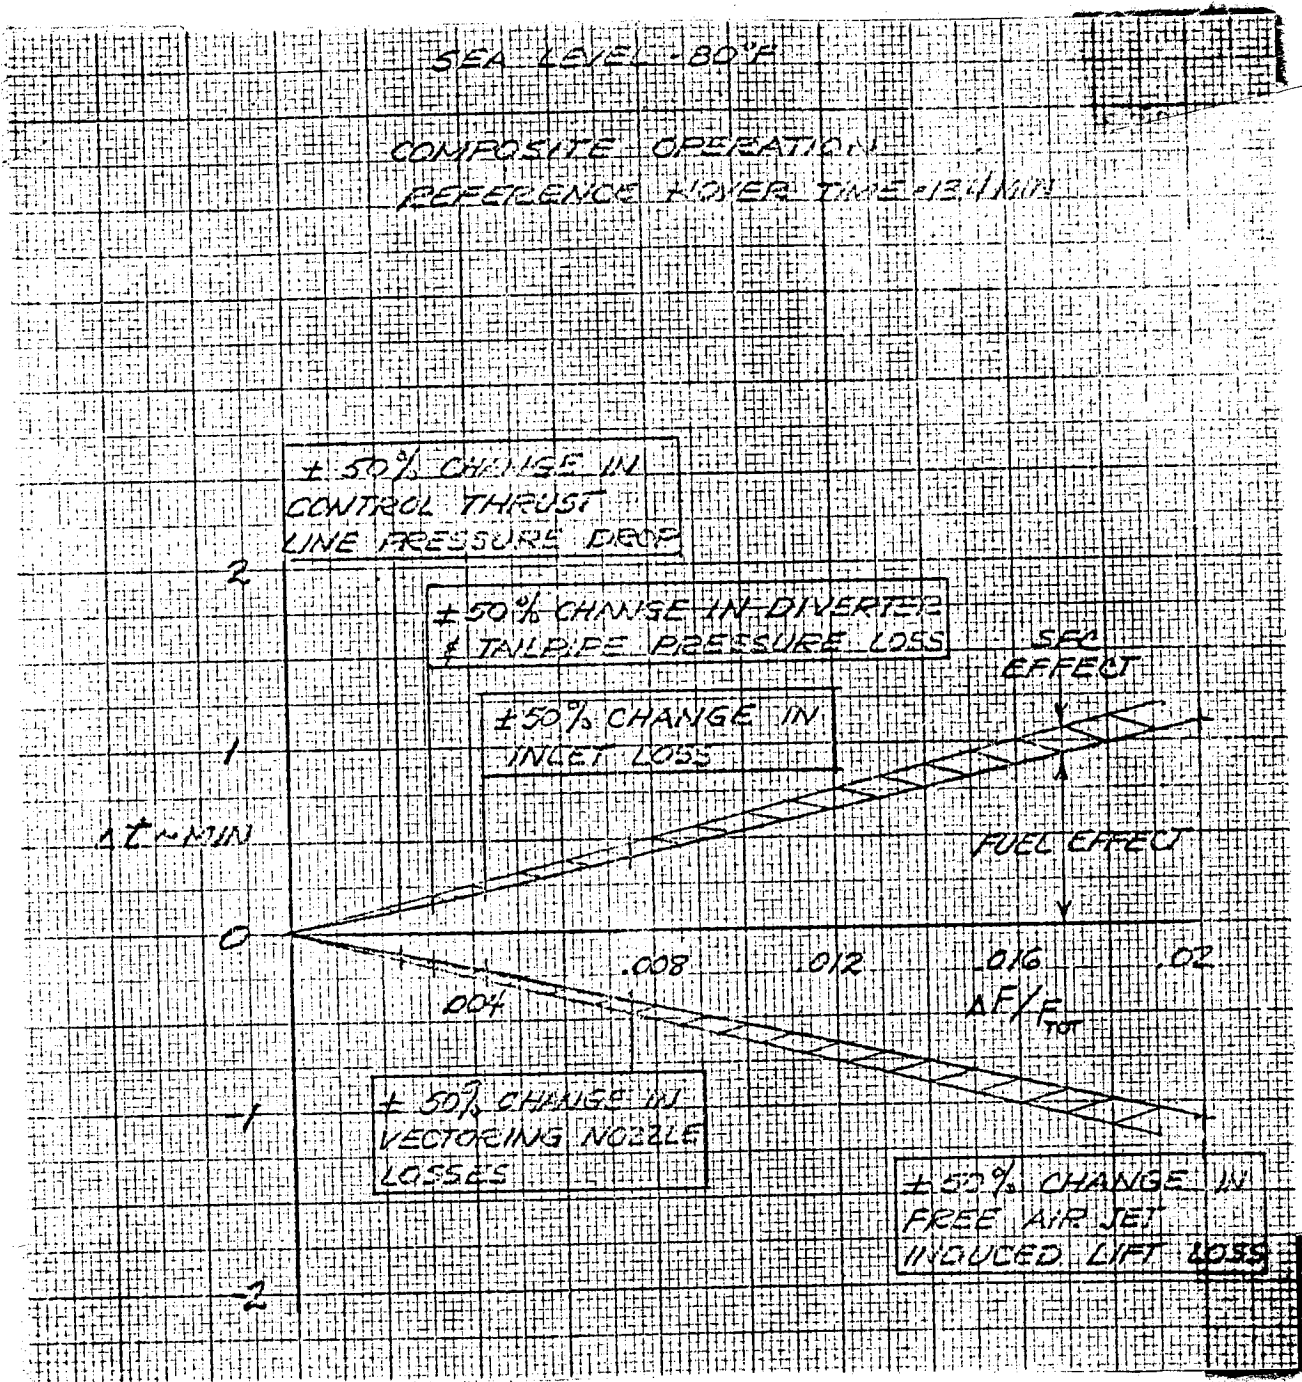 SEA LEVEL - 80°F
COMPOSITE OPERATION
REFERENCE HOVER TIME = 13.4 MIN
± 50% CHANGE IN
CONTROL THRUST
LINE PRESSURE DROP
2
± 50% CHANGE IN DIVERTER
& TAILPIPE PRESSURE LOSS
SFC
EFFECT
± 50% CHANGE IN
INLET LOSS
1
Δt ~ MIN
FUEL EFFECT
0
.004
.008
.012
.016
.02
ΔF/F_TOT
-1
± 50% CHANGE IN
VECTORING NOZZLE
LOSSES
± 50% CHANGE IN
FREE AIR JET
INDUCED LIFT LOSS
-2